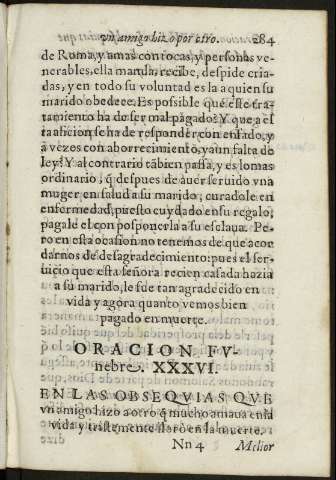 vn amigo hizo por otro. 284
de Roma, y amas con tocas, y personas ve-
nerables, ella manda, recibe, despide cria-
das, y en todo su voluntad es la a quien su
marido obedece. Es possible que este tra-
tamiento ha de ser mal pagado? Y que a es
ta aficion se ha de responder con enfado, y
a vezes con aborrecimiento, y aun falta de
ley? Y al contrario tãbien passa, y es lo mas
ordinario, q̃ despues de auer seruido vna
muger en salud a su marido, curadole en
enfermedad, puesto cuydado en su regalo,
pagale el con posponerla a su esclaua. Pe-
ro en esta ocasion no tenemos de que acor
darnos de desagradecimiento: pues el ser-
uicio que esta señora recien casada hazia
a su marido, le fue tan agradecido en
vida y agora quanto vemos bien
pagado en muerte.
ORACION FV-
nebre. XXXVI.
EN LAS OBSEQVIAS QVE
vn amigo hizo a otro q̃ mucho amaua en la
vida y tristemente lloró en la muerte.
Nn 4 Melior